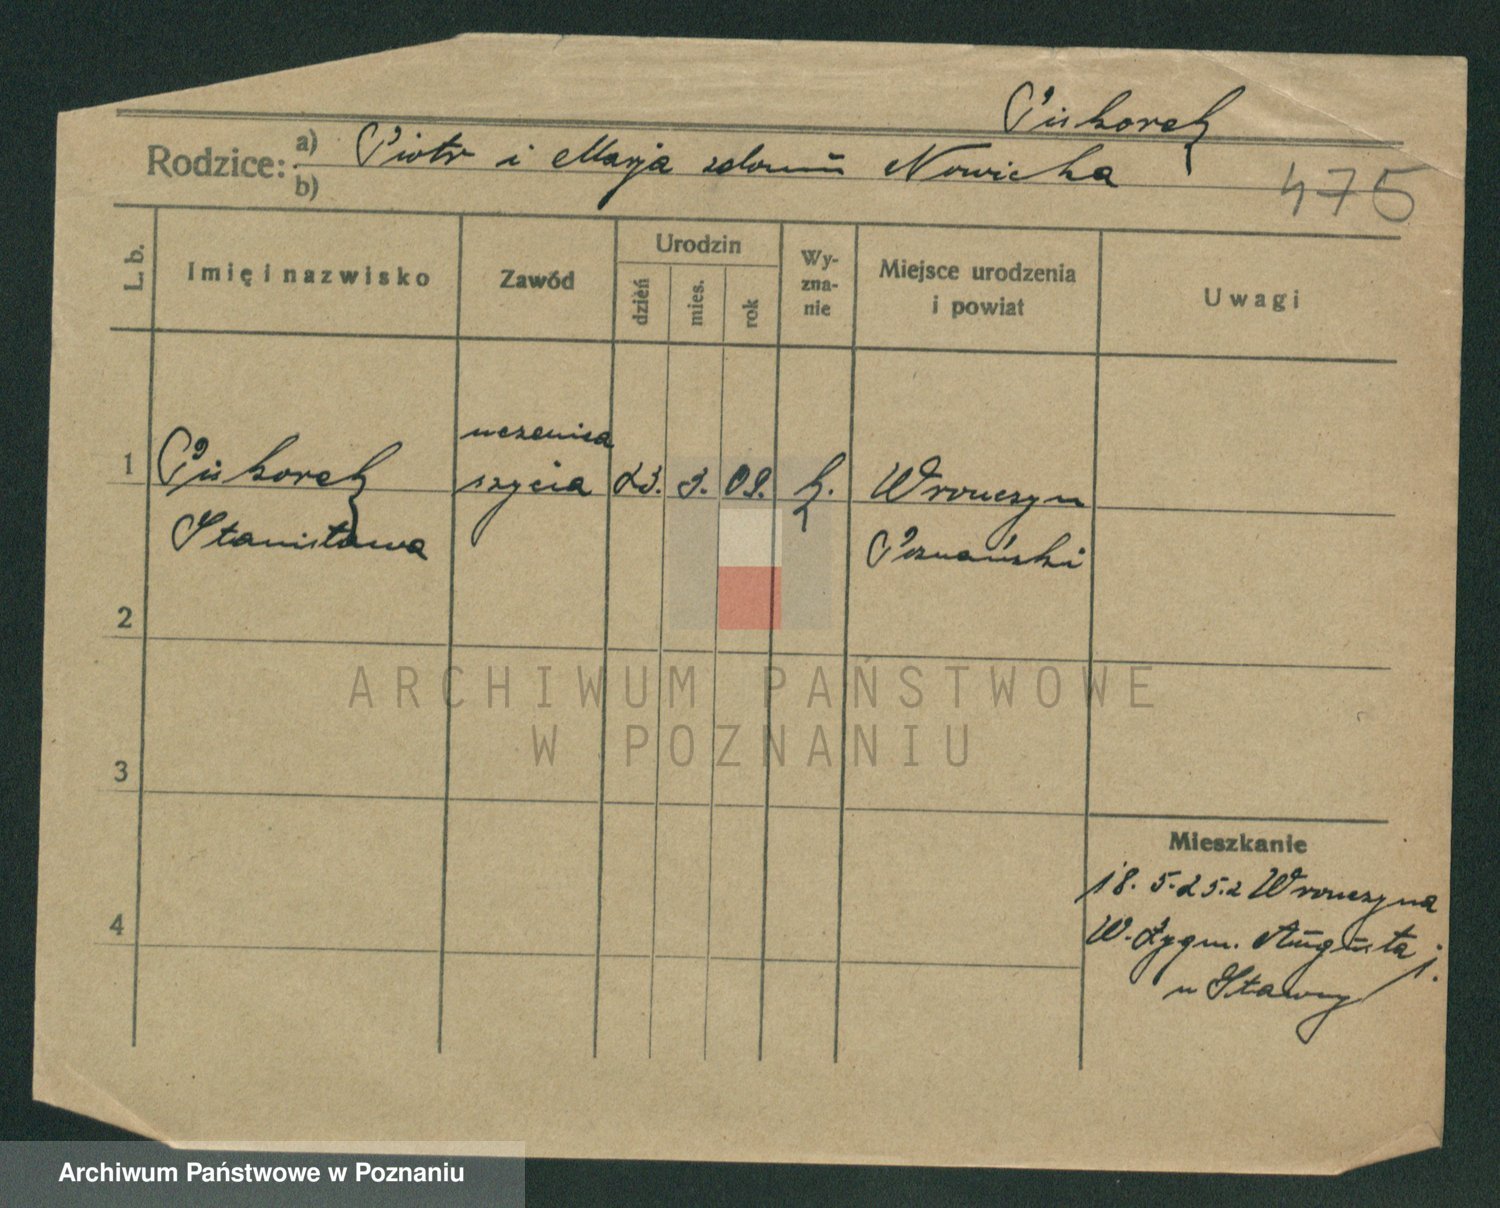 Piskorek
Rodzice: a) Piotr i Marja z domu Nowicka
b)
475
L. b.
Imię i nazwisko
Zawód
Urodzin
dzień
mies.
rok
Wy-
zna-
nie
Miejsce urodzenia
i powiat
Uwagi
1
Piskorek
Stanisława
uczenica
szycia
23. 9. 09. k.
Wronczyn
Poznański
2
3
4
Mieszkanie
18. 5. 25. z Wronczyna
W. Zygm. Augusta 1.
u Stawny
ARCHIWUM PAŃSTWOWE
W POZNANIU
Archiwum Państwowe w Poznaniu